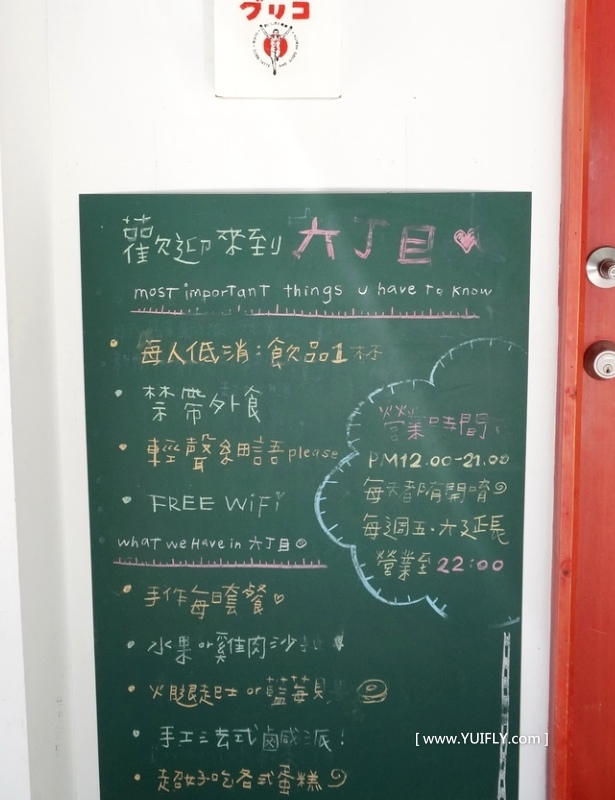 グリコ
歡迎來到 六丁目
most important things u have to know
每人低消:飲品1杯
禁帶外食
輕聲細語please
FREE WiFi
營業時間
PM12.00-21.00
每天都有開唷
每週五.六延長
營業至22:00
what we Have in 六丁目
手作每日套餐
水果or雞肉沙
火腿起士or藍莓貝
手工法式鹹派!
超好吃各式蛋糕
[ www.YUIFLY.com ]